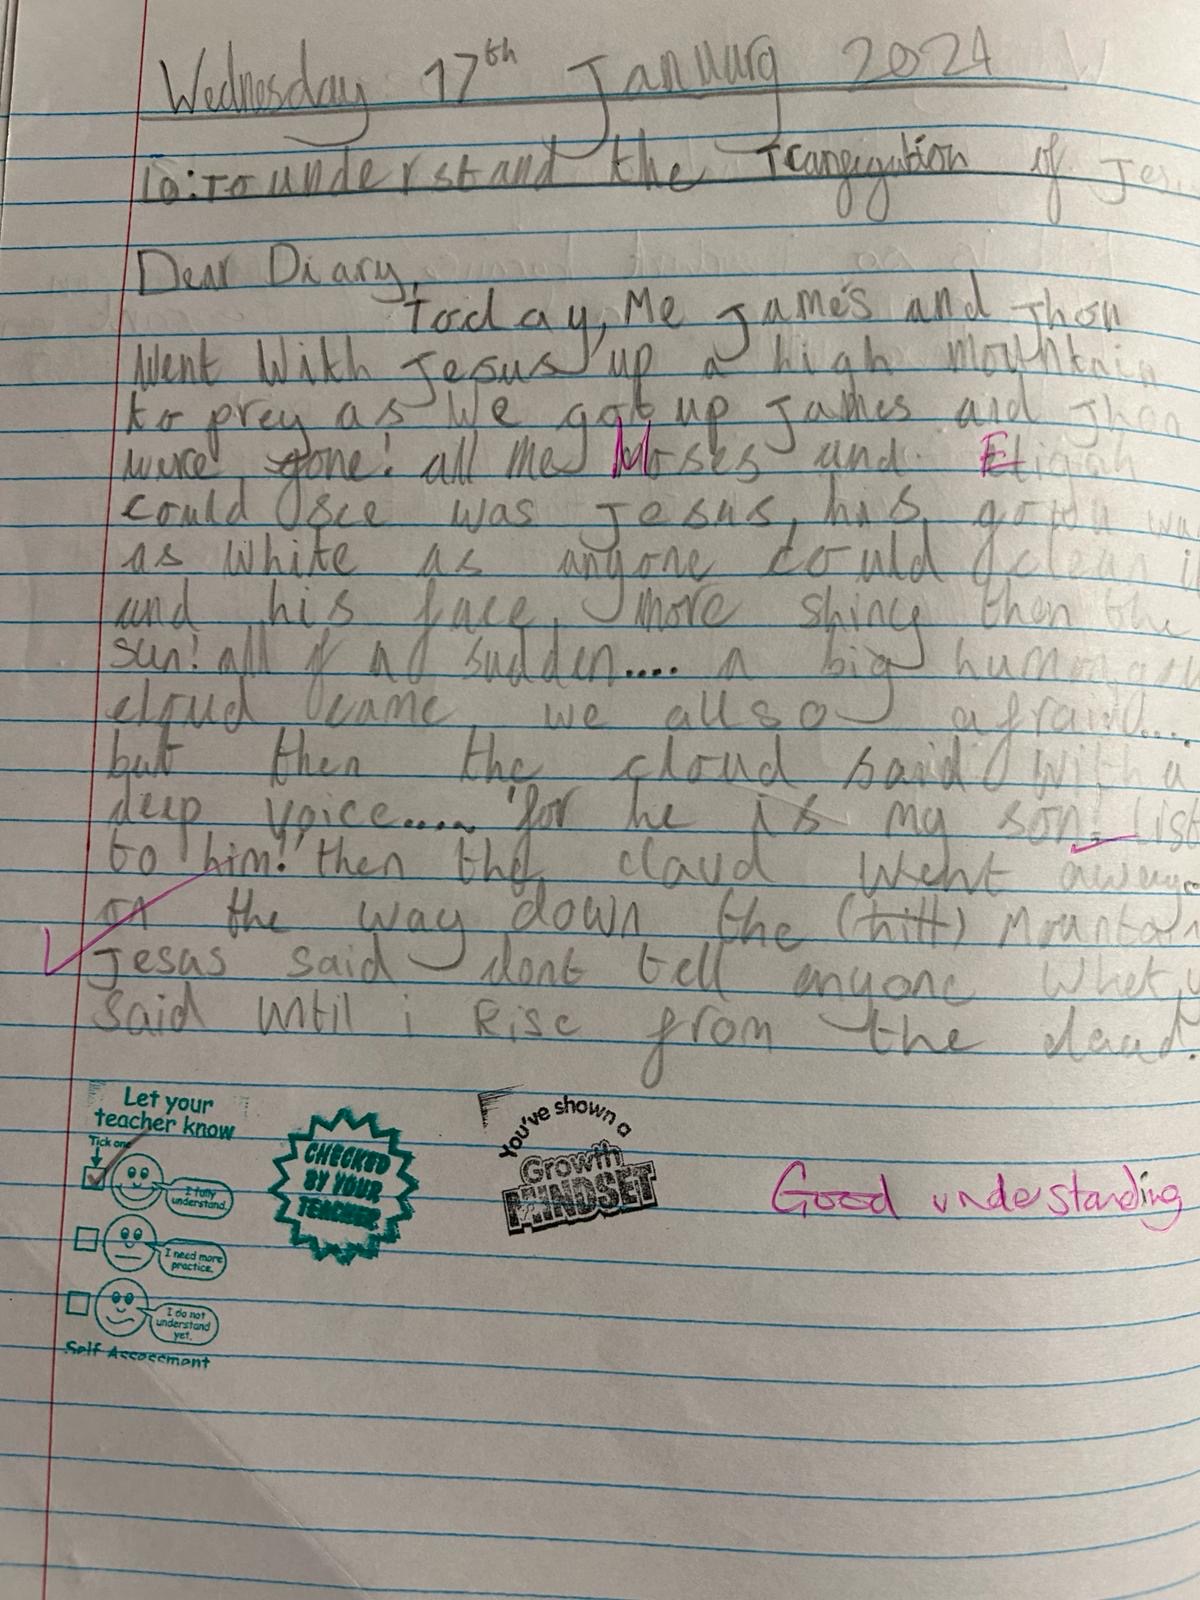 Wednesday 17th January 2024
Lo: To understand the Trangigution of Jes
Dear Diary,
Today, Me James and Jhon
went With Jesus up a high mountain
to prey as we got up James and Jhon
were gone! all me Moses and Eligah
could see was Jesus, his
as white as anyone could clean it
and his face more shiny then the
sun! all of a sudden.... a big
cloud came we allso afraid....
but then the cloud said With a
deep voice.... 'for he is my son! List
to him!' then the cloud went
on the way down the (hill) Mountain
Jesas said dont tell anyone
said until i Rise from the daed.
Let your
teacher know
Tick one
I fully
understand.
I need more
practice.
I do not
understand
yet.
Self Assessment
CHECKED
BY YOUR
TEACHER
You've shown a
Growth
MINDSET
Good understanding